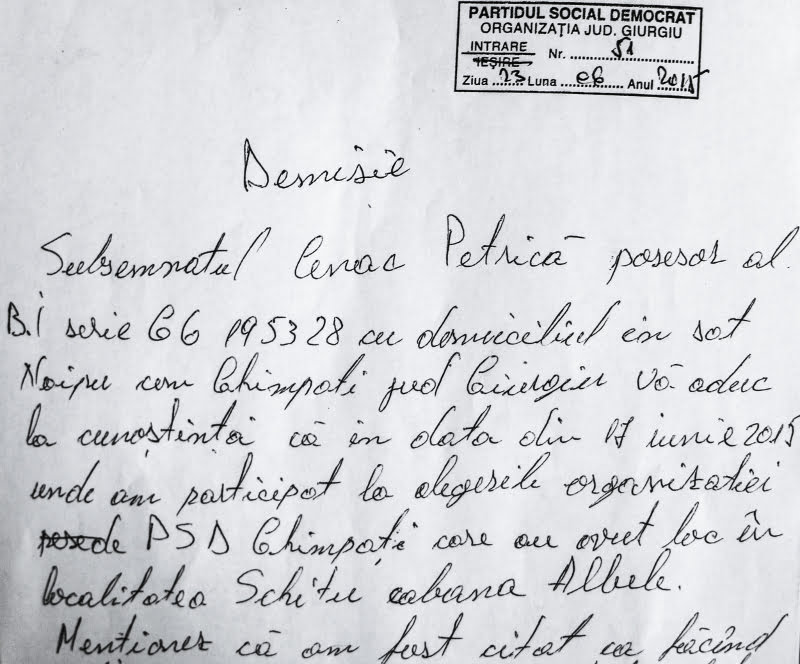 PARTIDUL SOCIAL DEMOCRAT
ORGANIZAȚIA JUD. GIURGIU
INTRARE
IEȘIRE Nr. 51
Ziua 23 Luna 06 Anul 2015
Demisie
Subsemnatul Cenac Petrică posesor al
B.I serie GG 195328 cu domiciliul în sat
Naipu com Ghimpati jud Giurgiu Vă aduc
la cunoștintă că în data din 17 iunie 2015
unde am participat la alegerile organizatiei
de PSD Ghimpați care au avut loc în
localitatea Schitu cabana Albele.
Mentionez că am fost citat ca făcînd